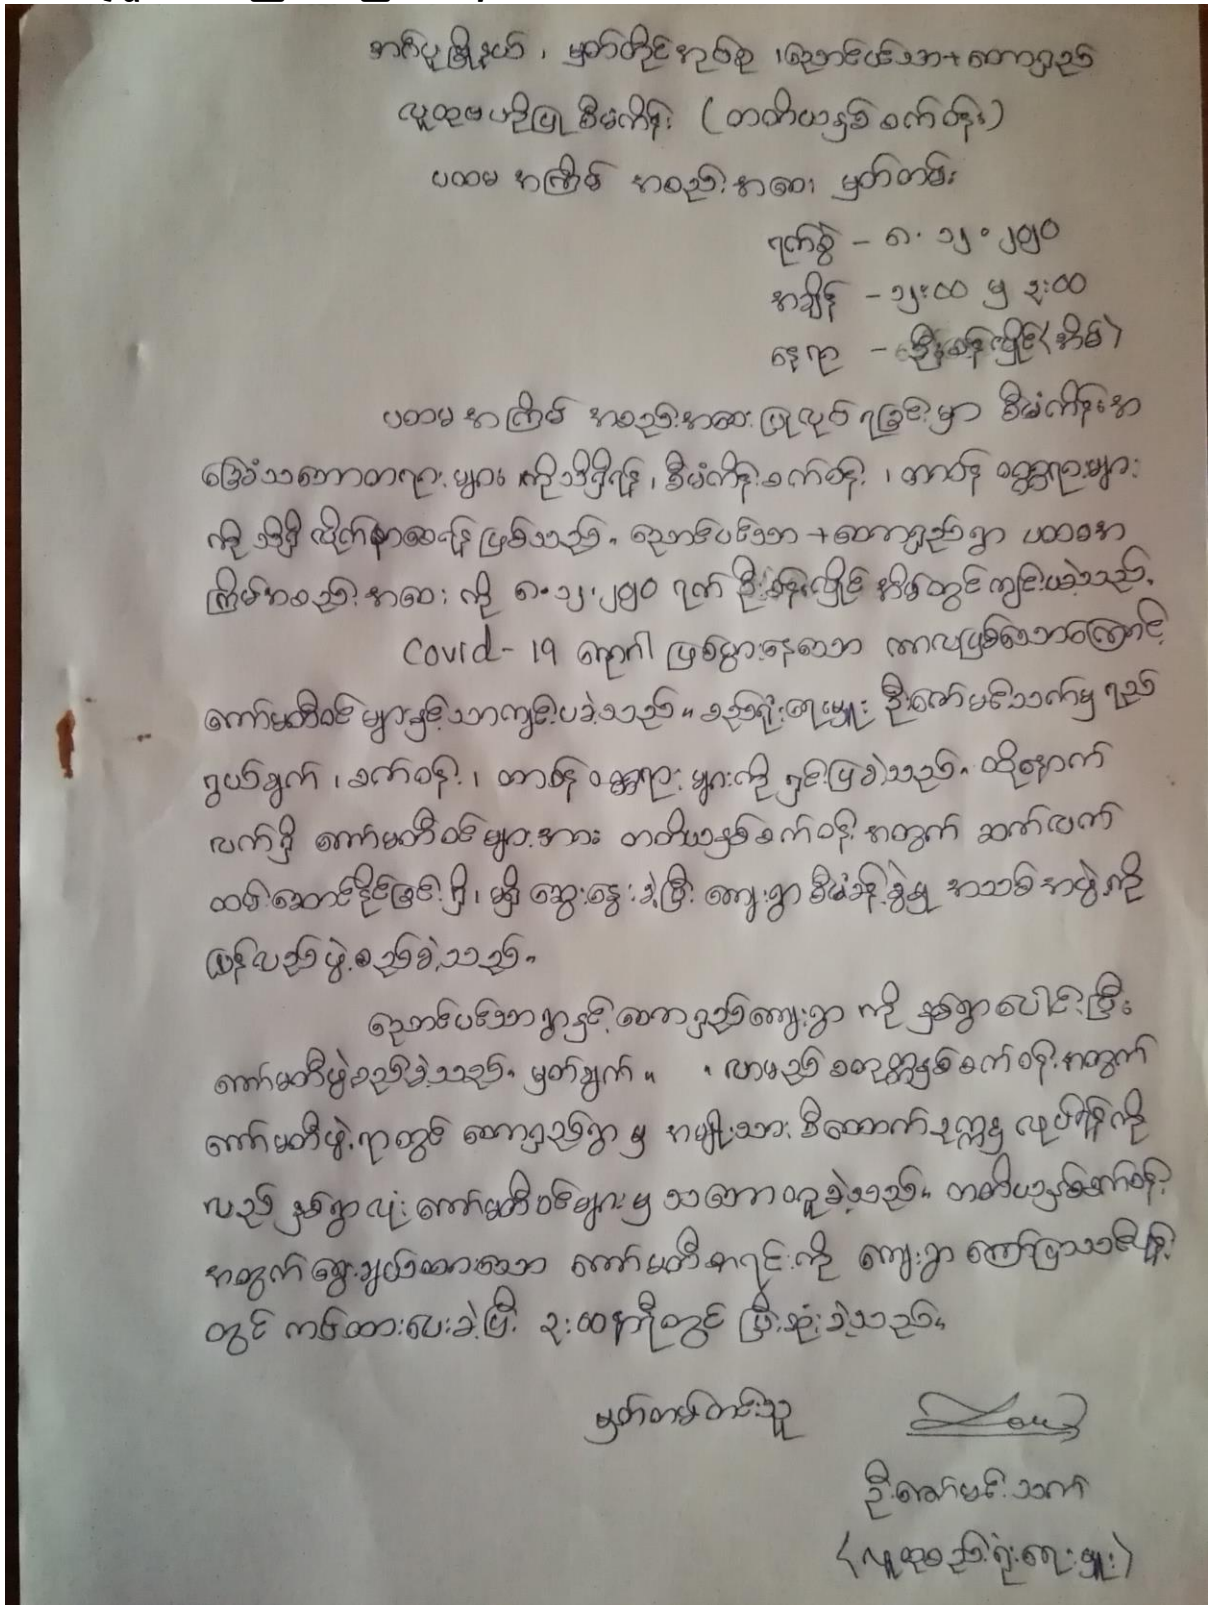 အင်္ဂပူမြို့နယ် ၊ မှတ်တိုင်အုပ်စု ၊ ညောင်ပင်သာ+တောရှည်
လူထုဗဟိုပြု စီမံကိန်း (တတိယနှစ် စက်ဝန်း)
ပထမ အကြိမ် အစည်းအဝေး မှတ်တမ်း
ရက်စွဲ – ၈. ၁၂. ၂၀၂၀
အချိန် – ၁၂:၀၀ မှ ၃:၀၀
နေရာ – ဦးစန်းလှိုင် (အိမ်)
ပထမ အကြိမ် အစည်းအဝေး ပြုလုပ် ရခြင်းမှာ စီမံကိန်းအ
ခြေခံသဘောတရားများ ကိုသိရှိရန် ၊ စီမံကိန်းစက်ဝန်း ၊ တာဝန် ဝတ္တရားများ
ကို သိရှိ လိုက်နာစေရန် ဖြစ်သည်။ ညောင်ပင်သာ +တောရှည်ရွာ ပထမအ
ကြိမ်အစည်းအဝေး ကို ၈.၁၂.၂၀၂၀ ရက် ဦးစန်းလှိုင် အိမ်တွင် ကျင်းပခဲ့သည်။
Covid-19 ရောဂါ ဖြစ်ပွားနေသော ကာလဖြစ်သောကြောင့်
ကော်မတီဝင်များနှင့်သာကျင်းပခဲ့သည်။ စည်းရုံးရေးမှူး ဦးဇော်မင်းသက်မှ ရည်
ရွယ်ချက် ၊ စက်ဝန်း ၊ တာဝန် ဝတ္တရားများကို ရှင်းပြခဲ့သည်။ ထို့နောက်
လက်ရှိ ကော်မတီဝင်များအား တတိယနှစ်စက်ဝန်းအတွက် ဆက်လက်
ထမ်းဆောင်နိုင်ခြင်းရှိ ၊ မရှိ ဆွေးနွေးခဲ့ပြီး ကျေးရွာစီမံခန့်ခွဲမှု အသစ်အဖွဲ့ကို
ပြန်လည်ဖွဲ့စည်းခဲ့သည်။
ညောင်ပင်သာရွာနှင့် တောရှည်ကျေးရွာ ကို နှစ်ရွာပေါင်းပြီး
ကော်မတီဖွဲ့စည်းခဲ့သည်။ မှတ်ချက်။ ။ လာမည့် စတုတ္ထနှစ်စက်ဝန်းအတွက်
ကော်မတီဖွဲ့ရာတွင် တောရှည်ရွာမှ အမျိုးသား စီထောက်ဥက္ကဋ္ဌ လုပ်ရန်ကို
လည်း နှစ်ရွာလုံး ကော်မတီဝင်များမှ သဘောတူခဲ့သည်။ တတိယနှစ်စက်ဝန်း
အတွက် ရွေးချယ်ထားသော ကော်မတီစာရင်းကို ကျေးရွာ ကြော်ငြာသင်ပုန်း
တွင် ကပ်ထားပေးခဲ့ပြီး ၃:၀၀နာရီတွင် ပြီးဆုံးခဲ့သည်။
မှတ်တမ်းတင်သူ
ဦးဇော်မင်းသက်
(လူထုစည်းရုံးရေးမှူး)